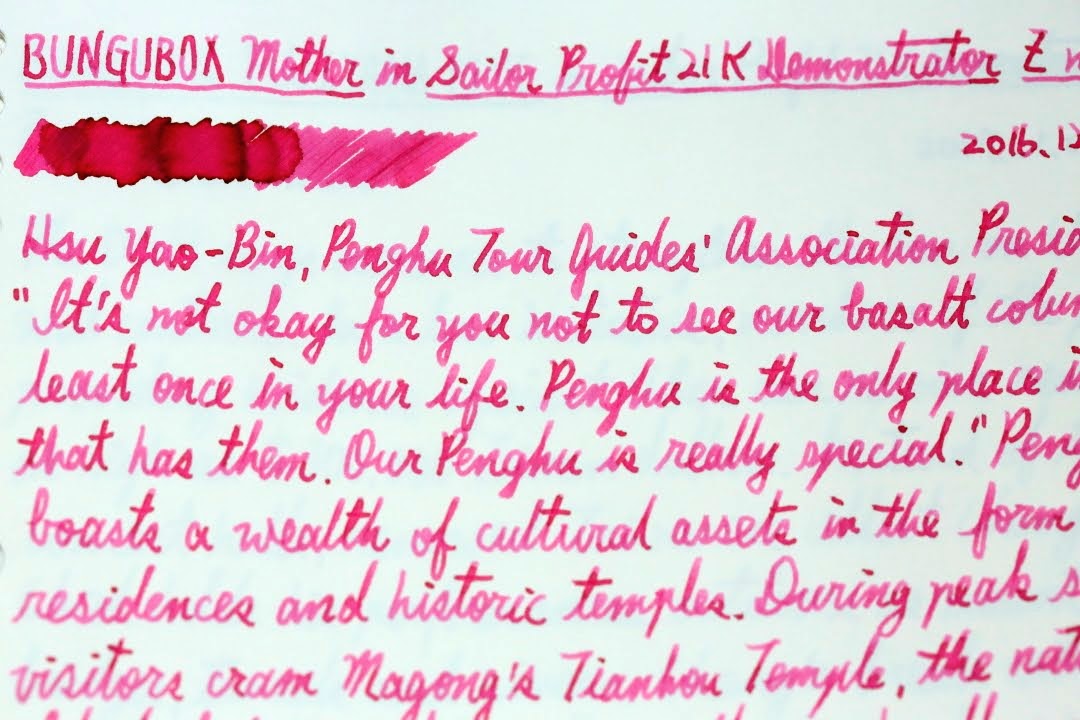 BUNGUBOX Mother in Sailor Profit 21K Demonstrator Z
2016.12
Hsu Yao-Bin, Penghu Tour Guides' Association
"It's not okay for you not to see our basalt
least once in your life. Penghu is the only place
that has them. Our Penghu is really special."
boasts a wealth of cultural assets in the form
residences and historic temples. During peak
visitors cram Magong's Tianhou Temple, the